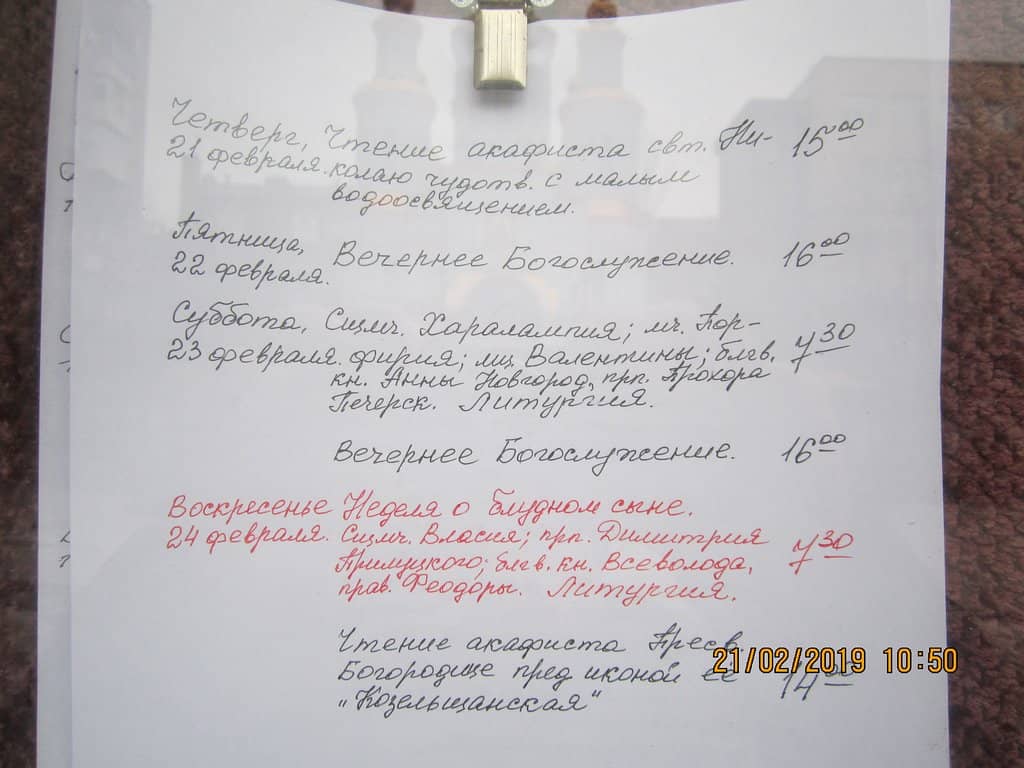 Четверг, Чтение акафиста свт. Ни- 15⁰⁰
21 февраля. колаю чудотв. с малым
водоосвящением.
Пятница,
22 февраля. Вечернее Богослужение. 16⁰⁰
Суббота, Сщмч. Харалампия; мч. Пор-
23 февраля. фирия; мц. Валентины; блгв. 7³⁰
кн. Анны Новгород, прп. Прохора
Печерск. Литургия.
Вечернее Богослужение. 16⁰⁰
Воскресенье Неделя о блудном сыне.
24 февраля. Сщмч. Власия; прп. Димитрия 7³⁰
Прилуцкого; блгв. кн. Всеволода,
прав. Феодоры. Литургия.
Чтение акафиста Пресв.
Богородице пред иконой её 14⁰⁰
"Козельщанская"
21/02/2019 10:50